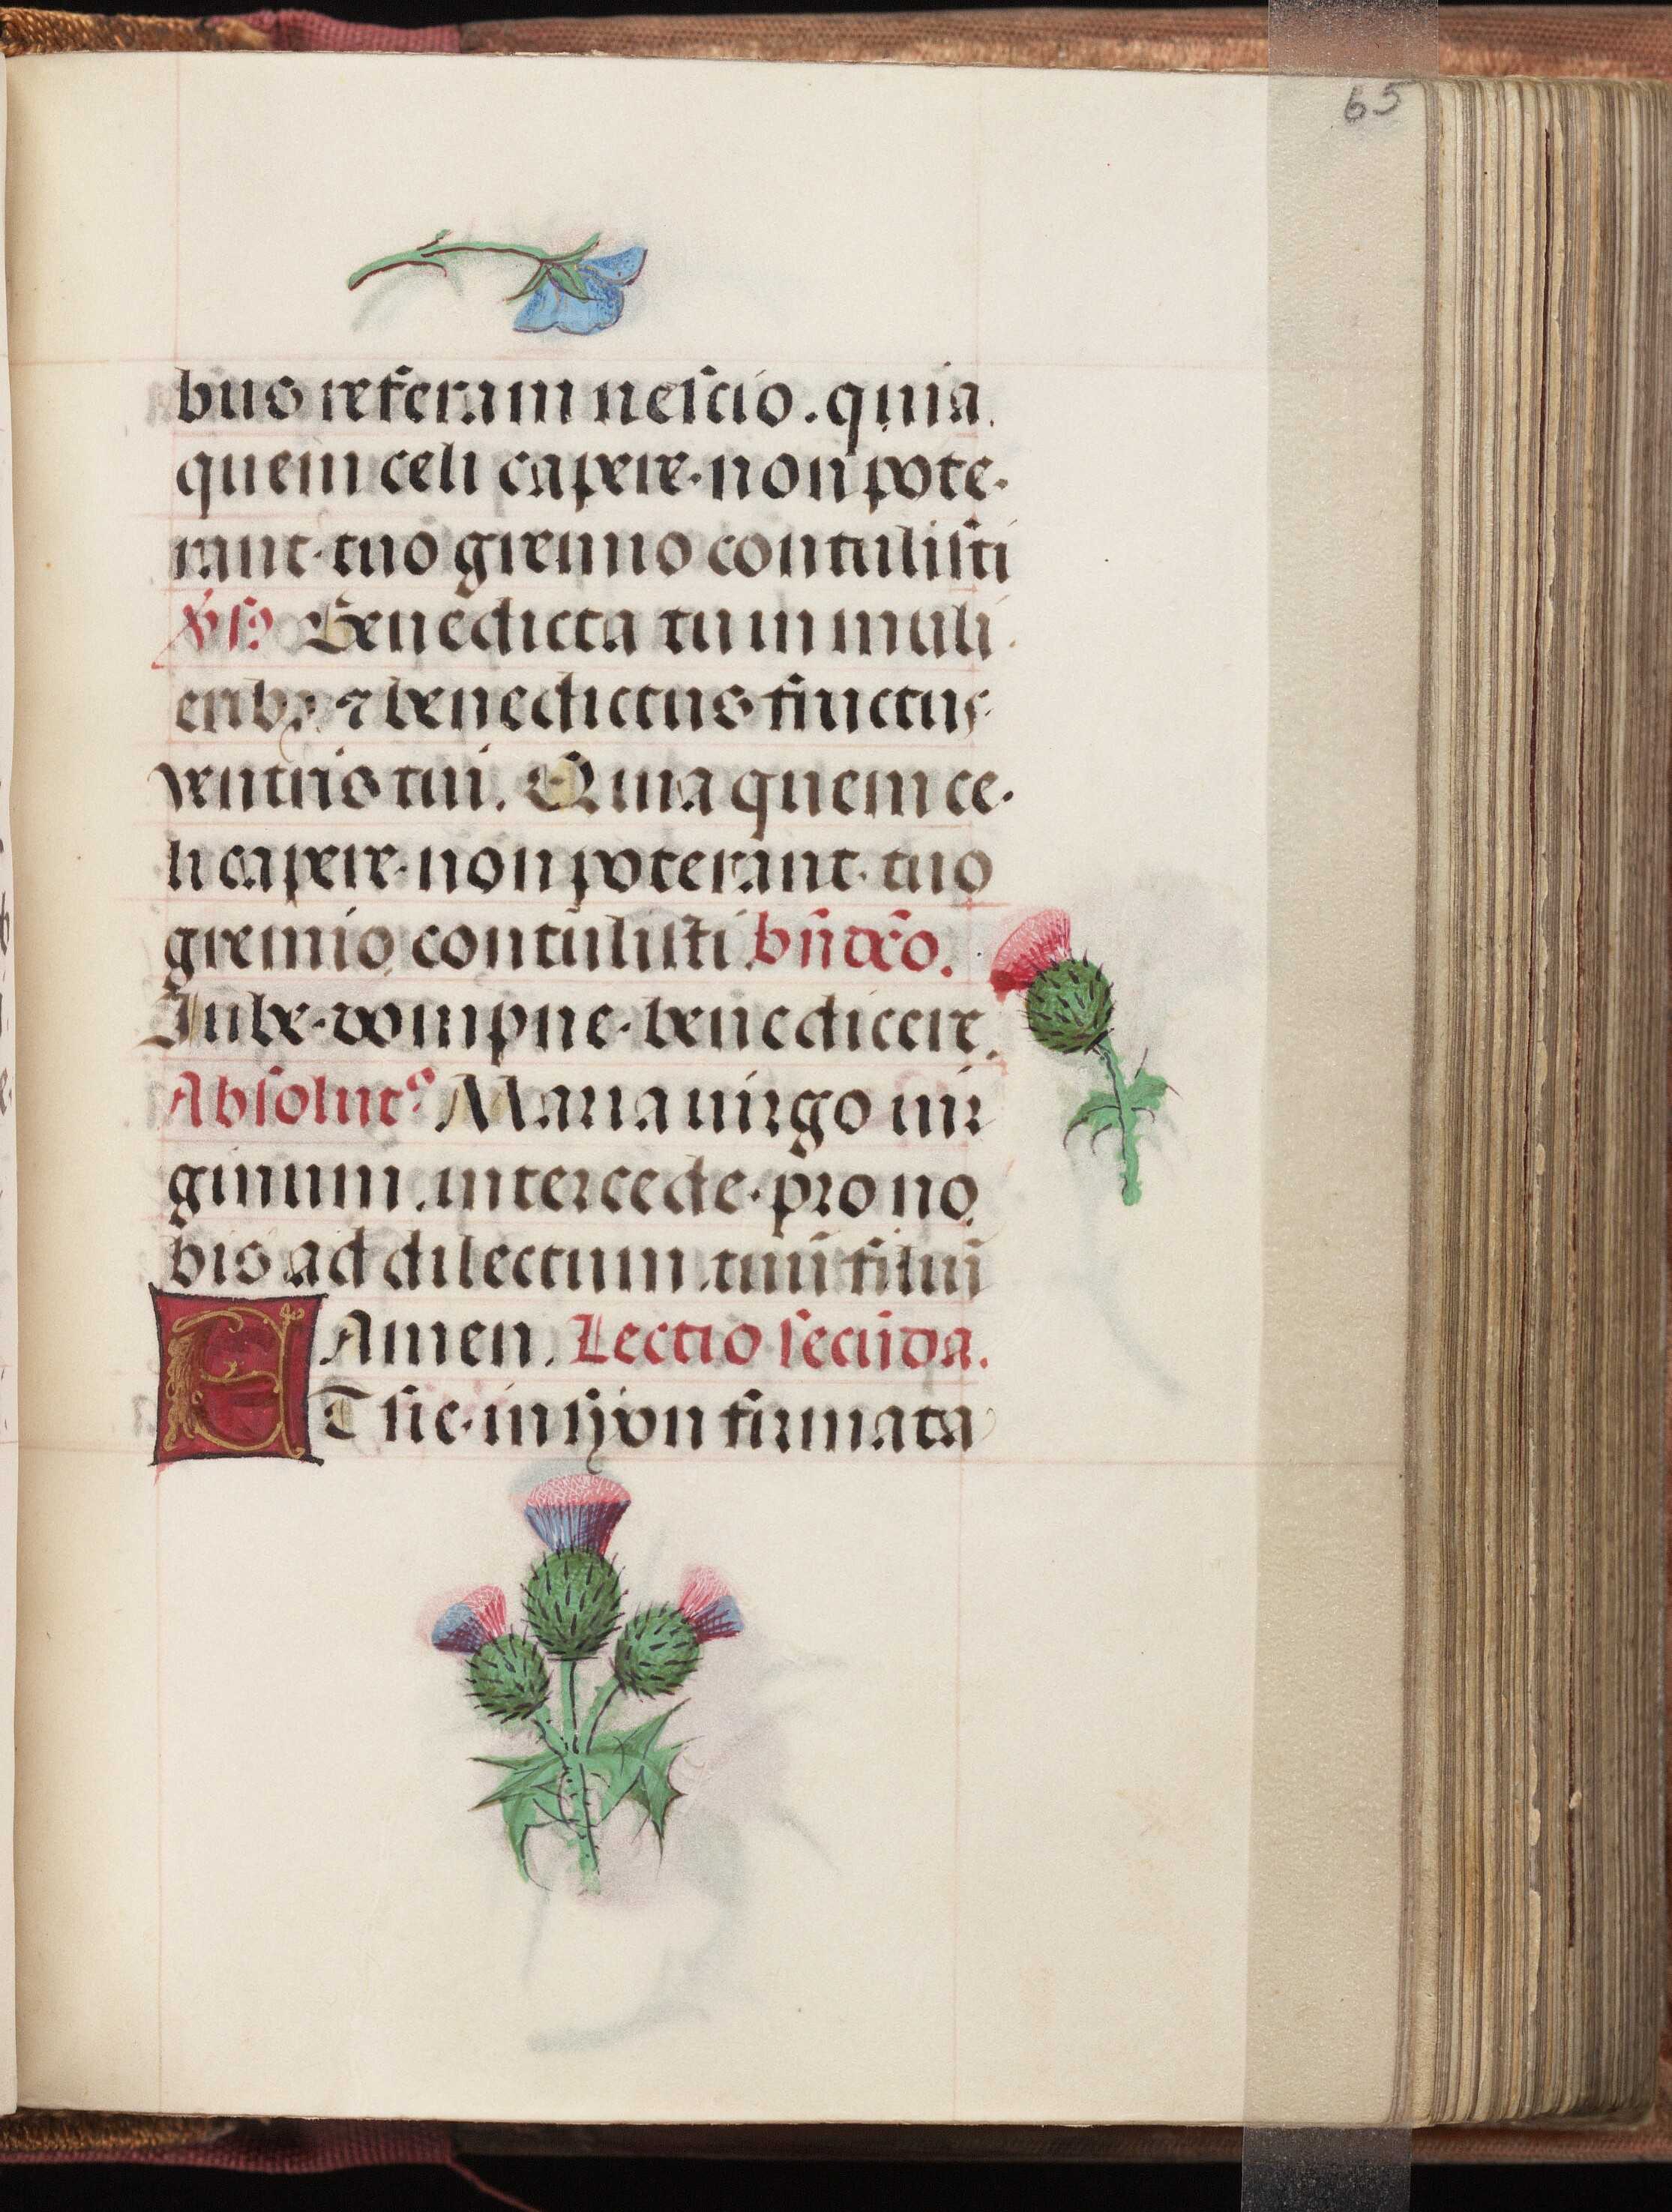 65
bus referam nescio. quia
quem celi capere. non pote.
rant. tuo gremio contulisti
Benedicta tu in muli
erib9 ⁊ benedictus fructus
ventris tui. Quia quem ce.
li capere. non poterant. tuo
gremio contulisti
Iube. dompne. benedicere.
Absolut° Maria uirgo uir
ginum. intercede. pro no
bis ad dilectum. tuū filiū
Amen. Lectio secūda.
ET sic. in syon firmata